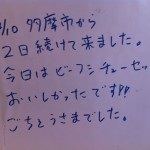 /10 多摩市から
2日続けて来ました。
今日はビーフシチューセッ
おいしかったです!!
ごちそうさまでした。